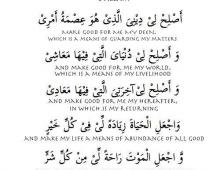 أَصْلِحْ لِىْ دِيْنِىَ الَّذِىْ هُوَ عِصْمَةُ أَمْرِىْ
MAKE GOOD FOR ME MY DEEN,
WHICH IS A MEANS OF GUARDING MY MATTERS
وَ أَصْلِحْ لِىْ دُنْيَاىَ الَّتِىْ فِيْهَا مَعَاشِىْ
AND MAKE GOOD FOR ME MY WORLD,
WHICH IS A MEANS OF MY LIVELIHOOD
وَ أَصْلِحْ لِىْ آخِرَتِىْ الَّتِىْ فِيْهَا مَعَادِىْ
AND MAKE GOOD FOR ME MY HEREAFTER,
IN WHICH IS MY RETURNING
وَاجْعَلِ الْحَيَاةَ زِيَادَةً لِّىْ فِىْ كُلِّ خَيْرٍ
AND MAKE MY LIFE A MEANS OF ABUNDANCE OF ALL GOOD
وَ اجْعَلِ الْمَوْتَ رَاحَةً لِّىْ مِنْ كُلِّ شَرٍّ